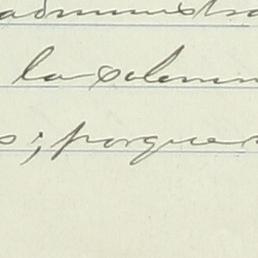 administra
la solemn
s; porque